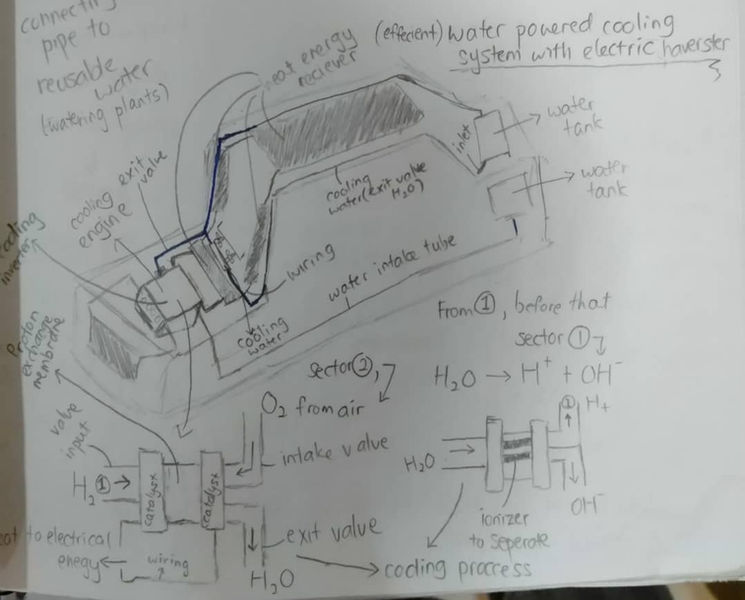 connecting
pipe to
reusable
water
(watering plants)
(effecient) water powered cooling
system with electric haverster
heat energy
reciever
water
tank
inlet
water
tank
exit valve
cooling
engine
cooling
inverter
cooling
water(exit valve
H₂O)
wiring
water intake tube
cooling
water
proton
exchange
membrane
From ①, before that
sector ①
H₂O → H⁺ + OH⁻
sector ②,
O₂ from air
valve
input
intake valve
H₂ ① →
catalysx
ccatalysx
H₂O
① H+
OH⁻
ionizer
to seperate
exit valve
heat to electrical
enegy ←
wiring
H₂O
cooling proccess